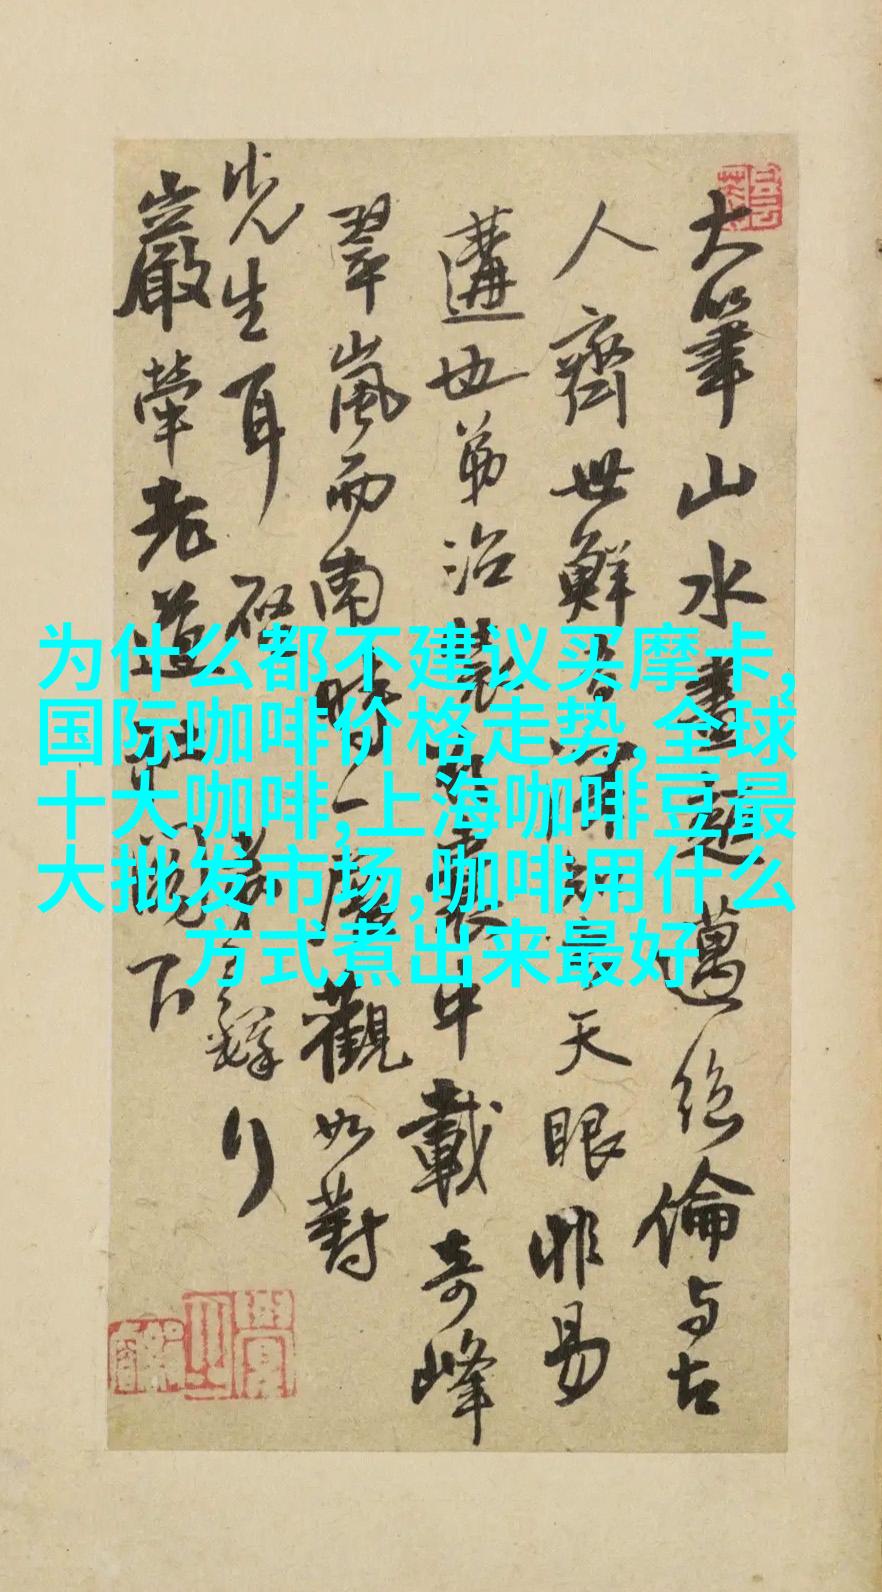 为什么都不建议买摩卡,
国际咖啡价格走势,全球
十大咖啡,上海咖啡豆最
大批发市场,咖啡用什么
方式煮出来最好
大筆山水畫超邁絕倫与古
人齊世鮮天眼非易
遘也弟治中載奇峰
翠嵐而南時一展觀如對
先生耳
嚴犖老道下